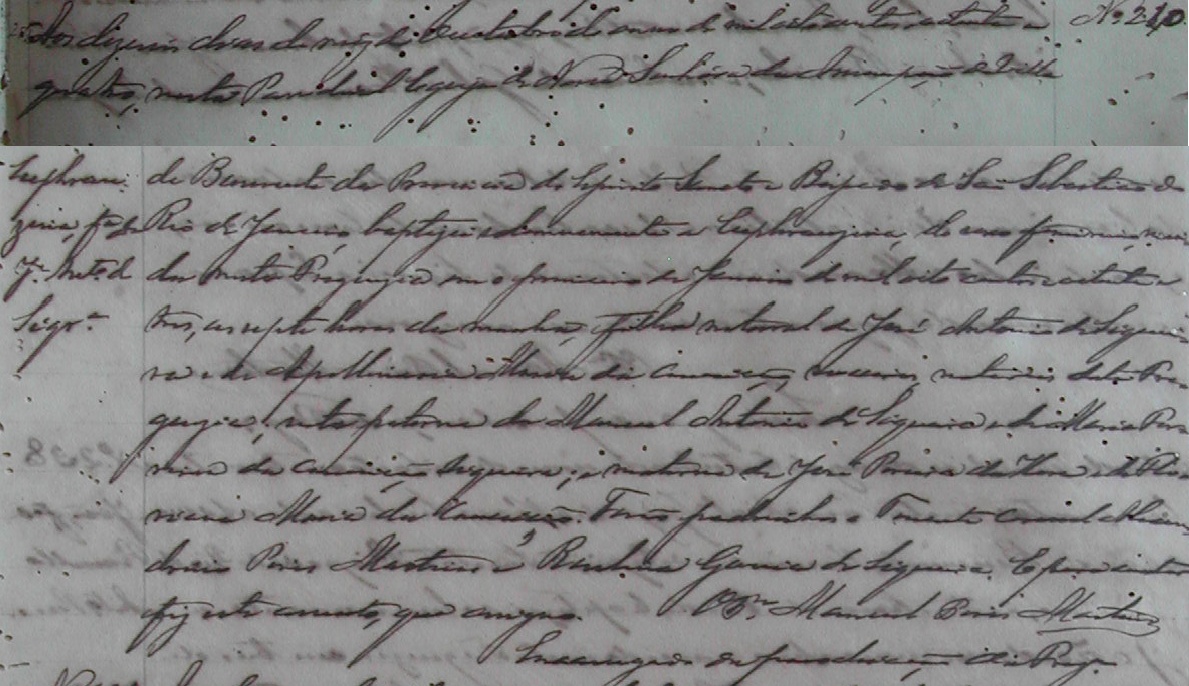 Nº 240
Aos dezeseis dias do mez de Outubro do anno de mil oito centos e setenta e
quatro, nesta Parochial Egreja de Nossa Senhora da Assumpção da Villa
Euphra-
zina, fª de
Jé. Antº de
Siqrª
de Benevente da Provincia do Espirito Santo e Bispado de São Sebastião do
Rio de Janeiro, baptizei solemnemente a Euphrazina, do sexo feminino,
da nesta Freguezia em o primeiro de Janeiro de mil oito centos e setenta e
tres, as septe horas da manhã, filha natural de José Antonio de Siquei-
ra e de Apollinaria Maria da Conceição, naturaes desta Fre-
guezia, neta paterna de Manuel Antonio de Siqueira e de Maria Pe-
reira da Conceição Siqueira; e materna de José Pereira da e de
Maria da Conceição. Forão padrinhos o Tenente Coronel
Pires Martins e Garcia de Siqueira. E para constar
fiz este assento, que assigno. O Pe. Manuel Pires Martins
Encarregado da Freg.